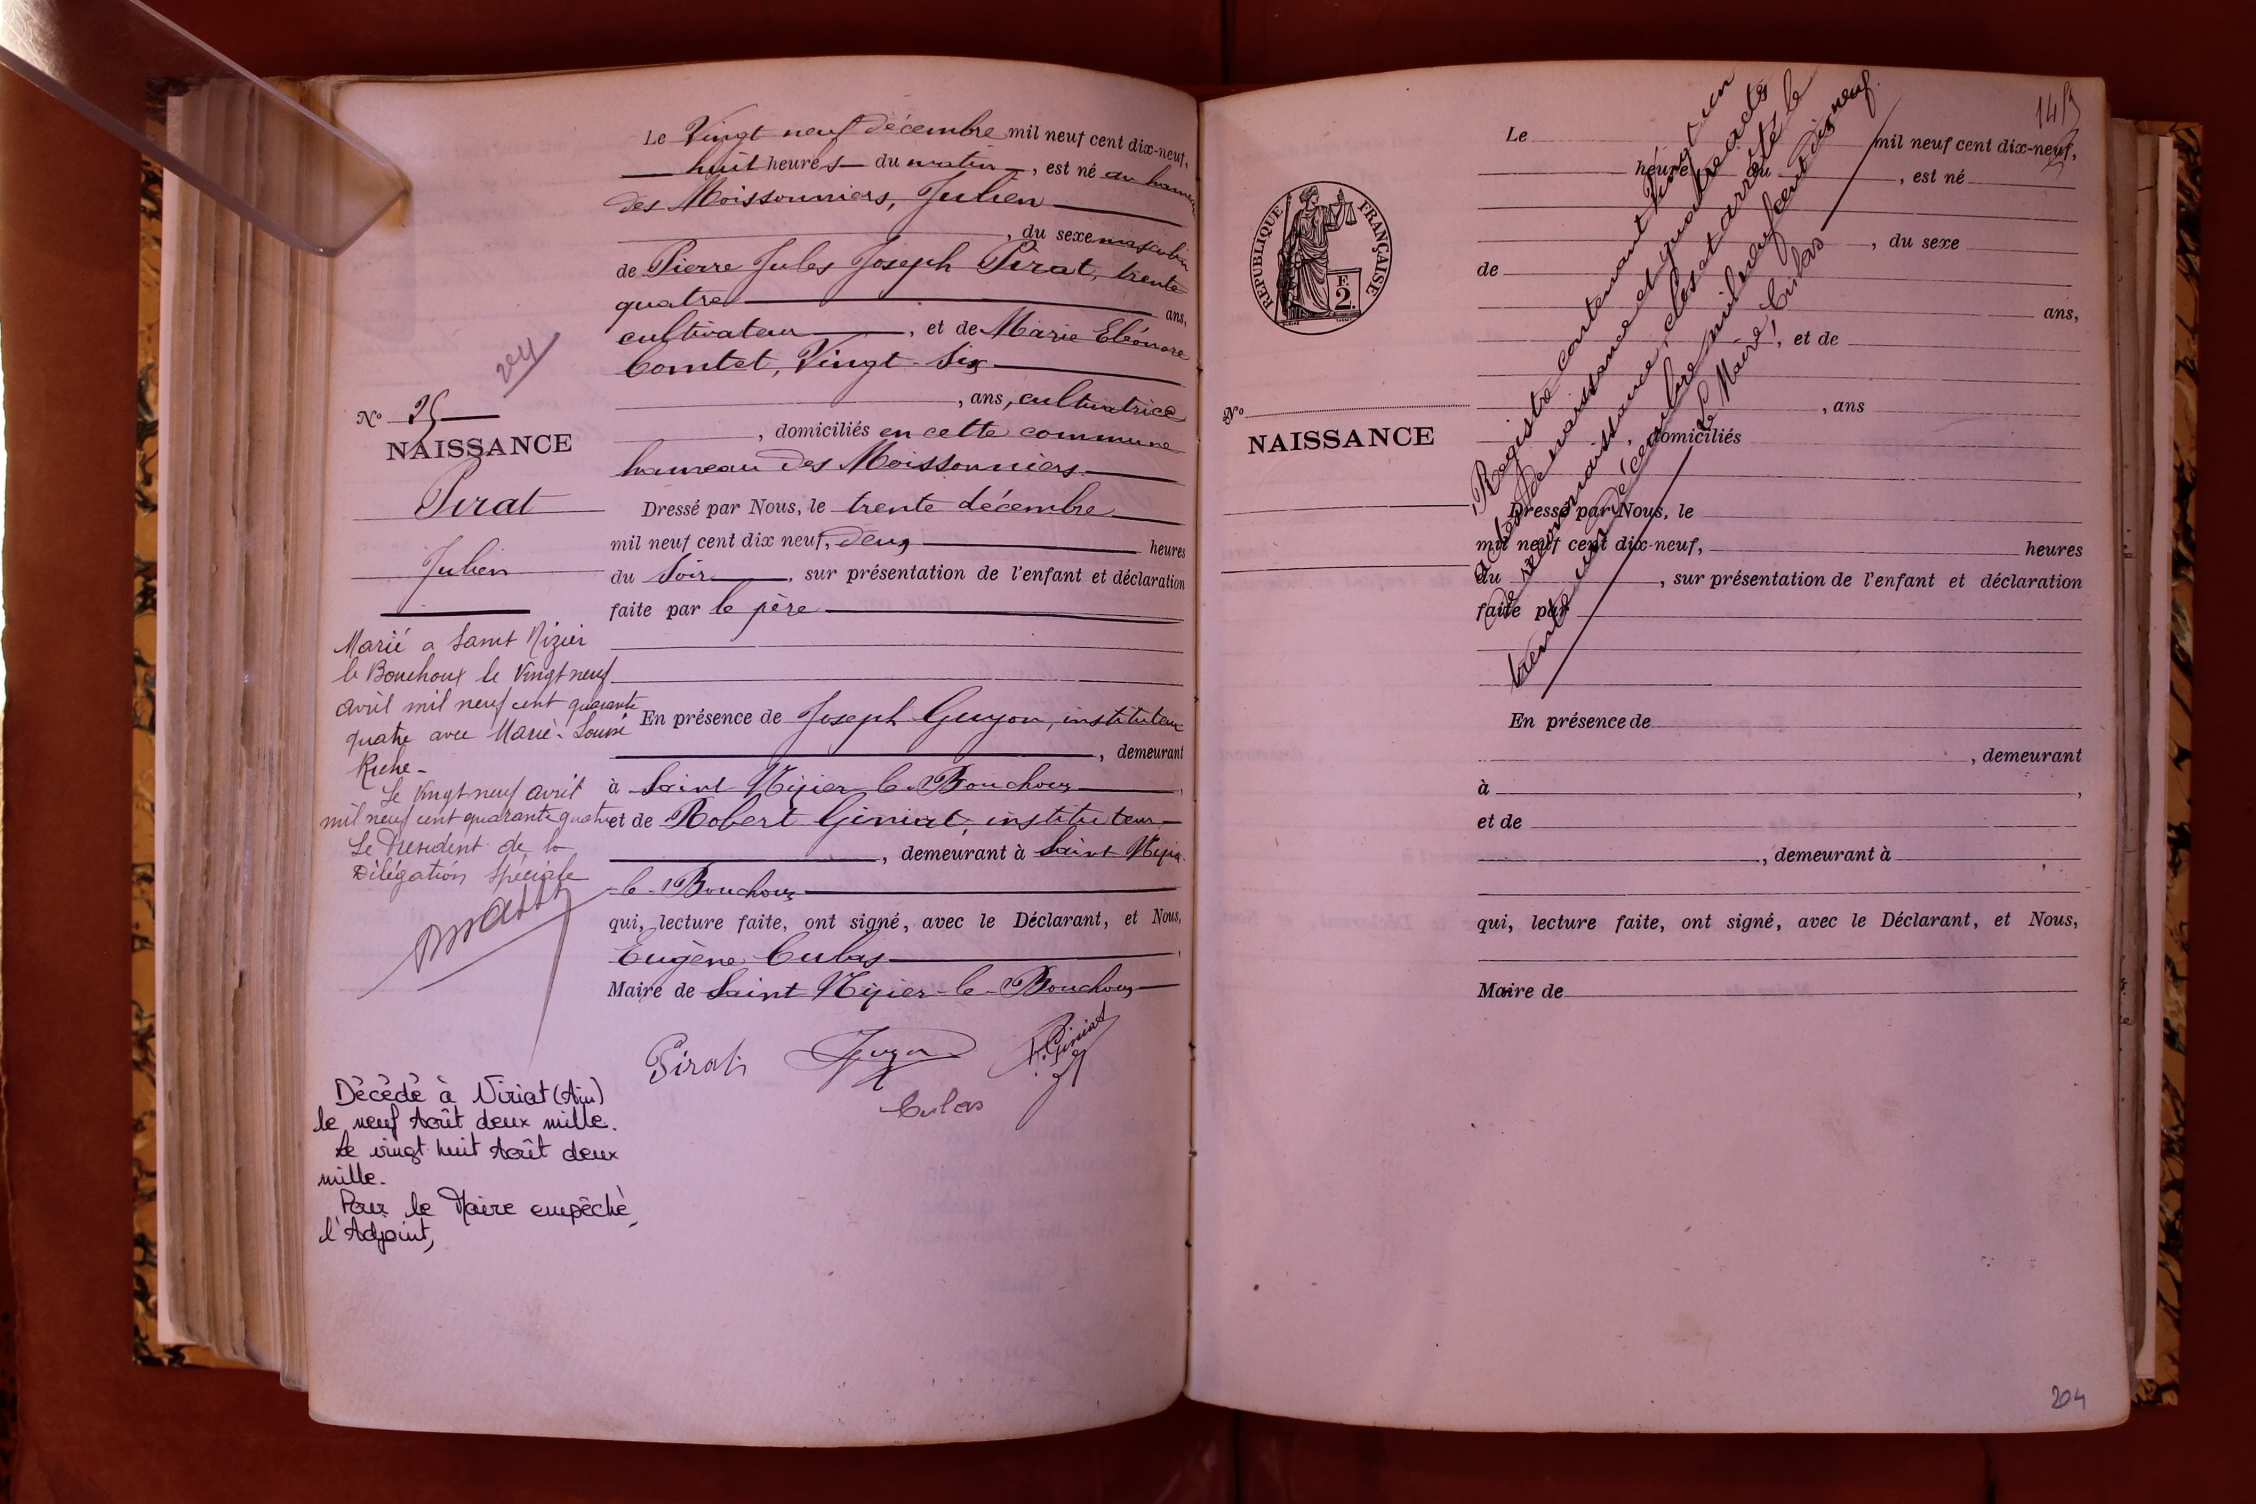 N° 25
NAISSANCE
Pirat
Julien
Marié a Saint Nizier
le Bouchoux le Vingt neuf
avril mil neuf cent quarante
quatre avec Marie-Louise
Le Vingt neuf avril
mil neuf cent quarante quatre
Le Président de la
Délégation Spéciale
Décédé à Viriat (Ain)
le neuf Août deux mille.
Le vingt huit Août deux
mille.
Pour le Maire empêché,
l'Adjoint,
Le Vingt neuf décembre mil neuf cent dix-neuf,
huit heures du matin, est né au hameau
des Moissonniers, Julien
, du sexe masculin
de Pierre Jules Joseph Pirat, trente
quatre ans,
cultivateur, et de Marie Eléonore
Comtet, Vingt-six
, ans, cultivatrice
, domiciliés en cette commune
hameau des Moissonniers
Dressé par Nous, le trente décembre
mil neuf cent dix neuf, deux heures
du Soir, sur présentation de l'enfant et déclaration
faite par le père
En présence de Joseph Guyon, instituteur
, demeurant
à Saint Nizier le Bouchoux,
et de Robert Giniat, instituteur
, demeurant à Saint Nizier
le Bouchoux
qui, lecture faite, ont signé, avec le Déclarant, et Nous,
Eugène Culas,
Maire de Saint Nizier-le-Bouchoux
Pirat
Guyon
R. Giniat
Culas
145
RÉPUBLIQUE FRANÇAISE
F.
2.
N°
NAISSANCE
Le mil neuf cent dix-neuf,
heure du , est né
, du sexe
de
ans,
, et de
, ans
, domiciliés
Dressé par Nous, le
mil neuf cent dix-neuf, heures
du , sur présentation de l'enfant et déclaration
faite par
En présence de
, demeurant
à ,
et de
, demeurant à
qui, lecture faite, ont signé, avec le Déclarant, et Nous,
Maire de
Registre contenant Vingt un
actes de naissance et quatre actes
de reconnaissance, clos et arrêté le
trente un décembre mil neuf cent dix neuf.
Le Maire, Culas
204